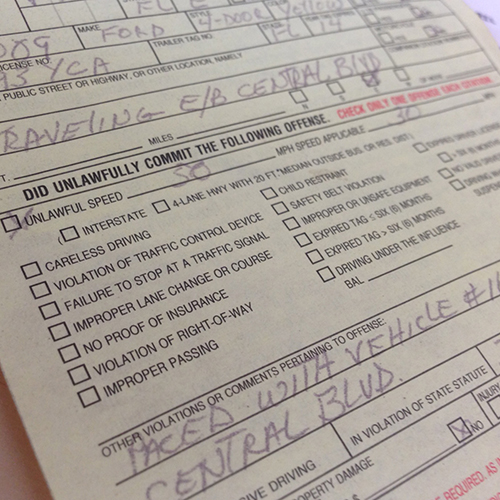 FL
MAKE FORD STYLE 4-DOOR Yellow
009 TRAILER TAG NO. FL 14
LICENSE NO.
93 / CA
PUBLIC STREET OR HIGHWAY, OR OTHER LOCATION, NAMELY
TRAVELING E/B CENTRAL BLVD
FT. MILES N S E W OF NODE
DID UNLAWFULLY COMMIT THE FOLLOWING OFFENSE. CHECK ONLY ONE OFFENSE EACH CITATION.
UNLAWFUL SPEED 50 MPH SPEED APPLICABLE 30
INTERSTATE 4-LANE HWY WITH 20 FT. MEDIAN OUTSIDE BUS. OR RES. DIST.
CARELESS DRIVING CHILD RESTRAINT
VIOLATION OF TRAFFIC CONTROL DEVICE SAFETY BELT VIOLATION
FAILURE TO STOP AT A TRAFFIC SIGNAL IMPROPER OR UNSAFE EQUIPMENT
IMPROPER LANE CHANGE OR COURSE EXPIRED TAG ≤ SIX (6) MONTHS
NO PROOF OF INSURANCE EXPIRED TAG > SIX (6) MONTHS
VIOLATION OF RIGHT-OF-WAY DRIVING UNDER THE INFLUENCE
IMPROPER PASSING BAL
OTHER VIOLATIONS OR COMMENTS PERTAINING TO OFFENSE:
PACED WITH VEHICLE #11
CENTRAL BLVD.
IN VIOLATION OF STATE STATUTE
DRIVING PROPERTY DAMAGE NO INJURY
REQUIRED. AS